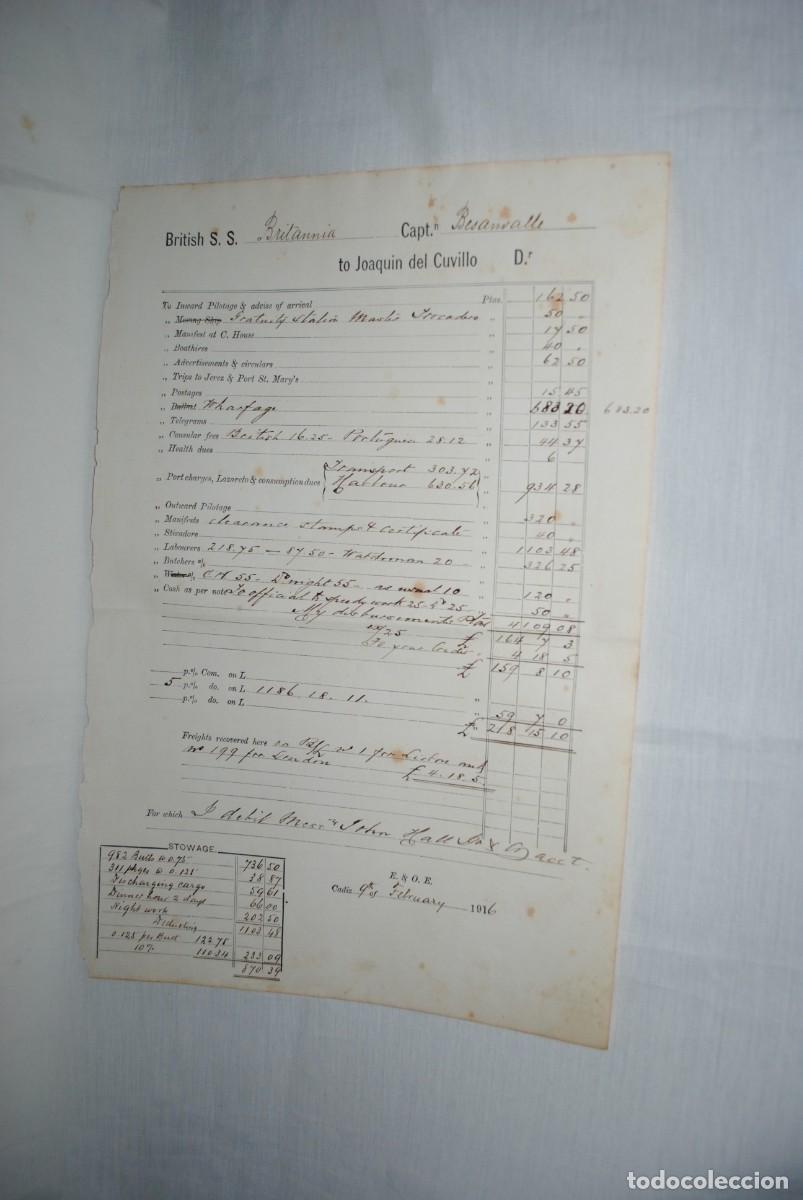 British S. S. Britannia Capt.n
to Joaquin del Cuvillo D.r
To Inward Pilotage & advise of arrival Ptas. 162 50
„ Moong Ship Gratuity Station Master Trocadero „ 50 „
„ Manifest at C. House „ 17 50
„ Boathires „ 40 „
„ Advertisements & circulars „ 62 50
„ Trips to Jerez & Port St. Mary's „
„ Postages „ 15 45
„ Ballast Wharfage „ 683 20 683.20
„ Telegrams „ 133 55
„ Consular fees British 16.25 - Portuguese 28.12 „ 44 37
„ Health dues „ 6
„ Port charges, Lazareto & consumption dues { Transport 303.72
Harbour 630.56 } „ 934 28
„ Outward Pilotage „
„ Manifests clearance stamps & Certificate „ 320 „
„ Stivadore „ 40 „
„ Labourers 218.75 — 87.50 - Watchman 20 „ 1103 48
„ Butchers a/c „ 326 25
„ C.H 55 - Do night 55 - as usual 10 „ 120 „
„ Cash as per note To official to speedy work 25 - Do 25 „ 50 „
My disbursements Ptas 4109 08
ex/25 £ 164 7 3
To your Credit „ 4 18 5
£ 159 8 10
p.o/o Com. on L
5 p.o/o do. on L 1186. 18. 11. „
p.o/o do. on L „ 59 7 0
£ 218 15 10
Freights recovered here on B/L no 1 for Lisbon and
no 199 for London £ 4.18.5.
For which I debit Messrs John Hall Jr & Cy acct.
STOWAGE
982 Butts @ 0.75 736 50
311 pkges @ 0.125 38 87
Discharging cargo 59 61
Dinner hour 2 days 66 00
Night work 202 50
Deducting 1103 48
0.125 per Butt 122 75
10% 110 34 233 09
870 39
E. & O. E.
Cadiz 9th of February 1916
todocoleccion